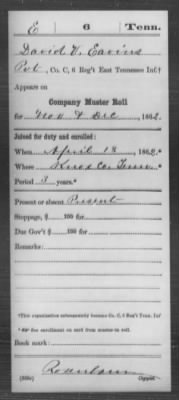 E 6 Tenn.
David V. Eavins
Pvt, Co. C, 6 Reg't East Tennessee Inf.†
Appears on
Company Muster Roll
for Nov & Dec, 1862.
Joined for duty and enrolled:
When April 18, 1862.*
Where Knox Co. Tenn
Period 3 years.*
Present or absent Present
Stoppage, $ 100 for
Due Gov't $ 100 for
Remarks:
†This organization subsequently became Co. C, 6 Reg't Tenn. Inf
enrollment on card from muster-in roll.
Book mark:
(358c) Copyist.